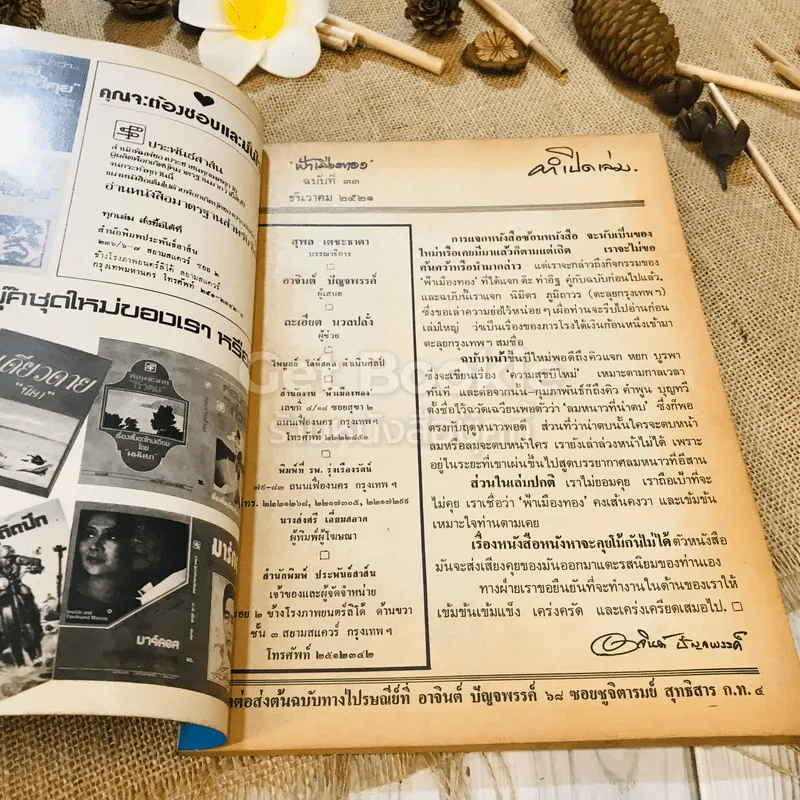 คุณจะต้องชอบและมั่นใจ
ประพันธ์สาส์น
อ่านหนังสือมาตรฐานสำหรับ
ทุกเล่ม สั่งซื้อได้ที่
สำนักพิมพ์ประพันธ์สาส์น
๒๓๖/๖-๗ สยามสแควร์ ซอย ๒
ข้างโรงภาพยนตร์ลิโด้ สยามสแควร์
กรุงเทพมหานคร โทรศัพท์
ชุดใหม่ของเรา
เดียวดาย
Imelda and
Ferdinand Marcos
มาร์คอส
"ฟ้าเมืองทอง"
ฉบับที่ ๓๓
ธันวาคม ๒๕๒๑
สุพล เตชะธาดา
บรรณาธิการ
อาจินต์ ปัญจพรรค์
ผู้เสนอ
ละเอียด นวลปลั่ง
ผู้ช่วย
ไพบูลย์ โล่ห์สกุล ดำเนินศิลป์
สำนักงาน 'ฟ้าเมืองทอง'
เลขที่ ๘/๑๘ ซอยสุขา ๒
ถนนเฟื่องนคร กรุงเทพฯ
โทรศัพท์ ๒๒๒๒๘๕๑
พิมพ์ที่ รพ. รุ่งเรืองรัตน์
๗๙-๘๓ ถนนเฟื่องนคร กรุงเทพฯ
โทร. ๒๒๑๒๑๖๘, ๒๒๑๗๓๐๕, ๒๒๑๗๒๙๙
นางส่งศรี เอี่ยมสอาด
ผู้พิมพ์ผู้โฆษณา
สำนักพิมพ์ ประพันธ์สาส์น
เจ้าของและผู้จัดจำหน่าย
ซอย ๒ ข้างโรงภาพยนตร์ลิโด้ ด้านขวา
ชั้น ๓ สยามสแควร์ กรุงเทพฯ
โทรศัพท์ ๒๕๑๒๓๔๒
คำเปิดเล่ม.
การแจกหนังสือซ้อนหนังสือ จะนับเป็นของ
ใหม่หรือเคยมีมาแล้วก็ตามแต่เถิด เราจะไม่ขอ
ค้นคว้าหรือนำมากล่าว แต่เราจะกล่าวถึงกิจกรรมของ
'ฟ้าเมืองทอง' ที่ได้แจก ต๊ะ ท่าอิฐ คู่กับฉบับก่อนไปแล้ว,
และฉบับนี้เราแจก นิมิตร ภูมิถาวร (ตะลุยกรุงเทพฯ)
ซึ่งขอเล่าความย่อไว้หน่อยๆ เผื่อท่านจะรีบไปอ่านก่อน
เล่มใหญ่ ว่าเป็นเรื่องของภารโรงได้เงินก้อนหนึ่งเข้ามา
ตะลุยกรุงเทพฯ สมชื่อ
ฉบับหน้าขึ้นปีใหม่พอดีถึงคิวแจก หยก บูรพา
ซึ่งจะเขียนเรื่อง 'ความสุขปีใหม่' เหมาะตามกาลเวลา
ทันที และต่อจากนั้น-กุมภาพันธ์ก็ถึงคิว คำพูน บุญทวี
ตั้งชื่อไว้ฉวัดเฉวียนพอตัวว่า 'ลมหนาวที่น่าตบ' ซึ่งก็พอ
ตรงกับฤดูหนาวพอดี ส่วนที่ว่าน่าตบนั้นใครจะตบหน้า
ลมหรือลมจะตบหน้าใคร เรายังเล่าล่วงหน้าไม่ได้ เพราะ
อยู่ในระยะที่เขาเผ่นขึ้นไปสูดบรรยากาศลมหนาวที่อีสาน
ส่วนในเล่มปกติ เราไม่ยอมคุย เราถือเป้าที่จะ
ไม่คุย เราเชื่อว่า 'ฟ้าเมืองทอง' คงเส้นคงวา และเข้มข้น
เหมาะใจท่านตามเคย
เรื่องหนังสือหนังหาจะคุยโม้กันไม่ได้ ตัวหนังสือ
มันจะส่งเสียงคุยของมันออกมาแตะรสนิยมของท่านเอง
ทางฝ่ายเราขอยืนยันที่จะทำงานในด้านของเราให้
เข้มข้นเข้มแข็ง เคร่งครัด และเคร่งเครียดเสมอไป. □
อาจินต์ ปัญจพรรค์
ต่อส่งต้นฉบับทางไปรษณีย์ที่ อาจินต์ ปัญจพรรค์ ๖๘ ซอยชูจิตารมย์ สุทธิสาร ก.ท. ๔
Get Bookie